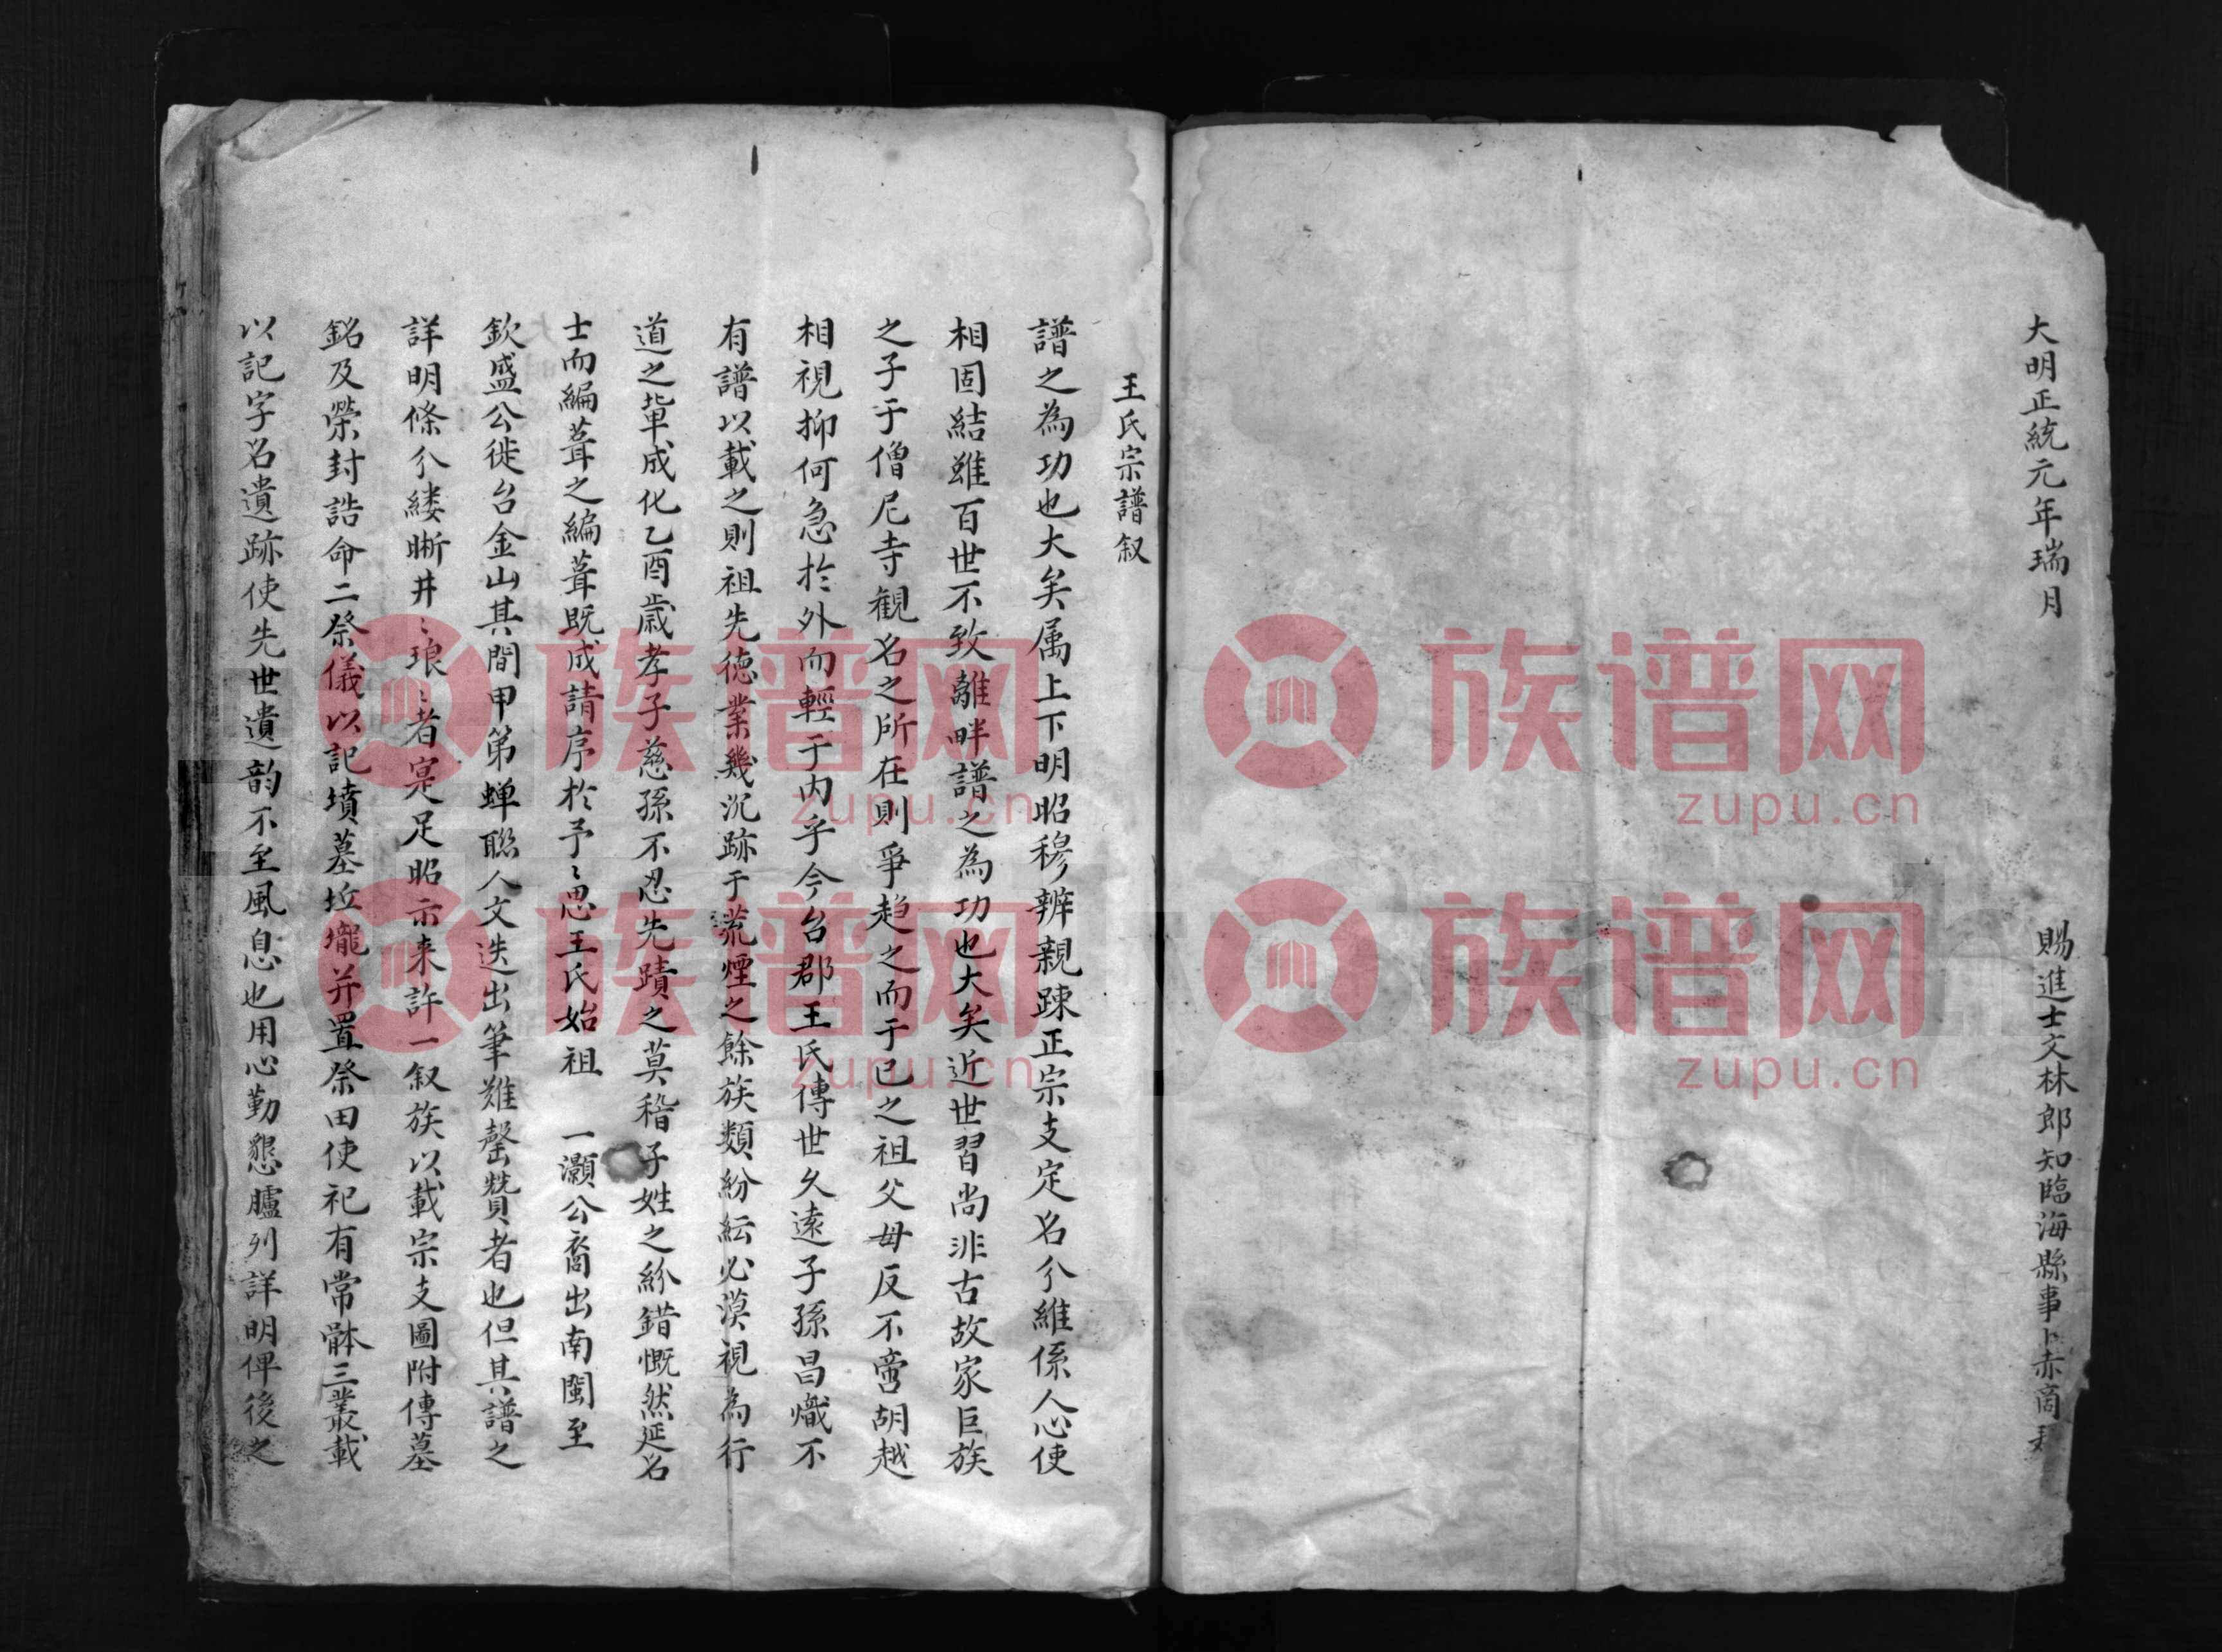 大明正統元年瑞月
賜進士文林郎知臨海縣事卜赤商
王氏宗譜叙
譜之為功也大矣属上下明昭穆辨親踈正宗支定名分維係人心使
相固結雖百世不致離畔譜之為功也大矣近世習尚非古故家巨族
之子于僧尼寺觀名之所在則爭趋之而于已之祖父母反不啻胡越
相視抑何急於外而輕于内乎今台郡王氏傳世久遠子孫昌熾不
有譜以載之則祖先德業幾沉跡于荒煙之餘族類紛紜必漠視為行
道之軰成化乙酉歲孝子慈孫不忍先蹟之莫稽子姓之紛錯慨然延名
士而編葺之編葺既成請序於予〻思王氏始祖 一灝公裔出南閩至
欽盛公徙台金山其間甲第蟬聯人文迭出筆难罄贊者也但其譜之
詳明條分縷晰井〻琅〻者寔足昭示来許一叙族以載宗支圖附傳墓
銘及榮封誥命二祭儀以記墳墓坵壠并置祭田使祀有常骵三叢載
以記字名遺跡使先世遺韵不至風息也用心勤懇臚列詳明俾後之
族谱网
zupu.cn
族谱网
zupu.cn
族谱网
zupu.cn
族谱网
zupu.cn